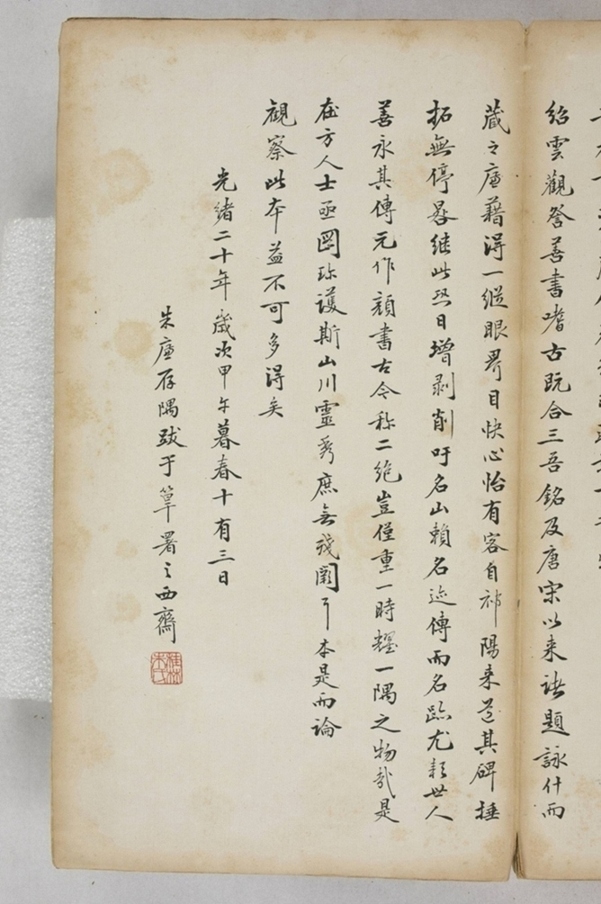 紹雲觀詧善書嗜古既合三吾銘及唐宋以来諸題詠什而
蔵之廬藉得一縱眼界目快心怡有客自祁陽来道其碑捶
拓無停晷継此恐日增剥削吁名山賴名迹傳而名跡尤賴世人
善永其傳元作顔書古今称二绝豈僅重一時耀一隅之物哉是
在方人士亟圖珎護斯山川靈秀庶無殘闕耳本是而論
觀察此本益不可多得矣
光緒二十年歲次甲午暮春十有三日
朱
存隅跋于
署之西齋